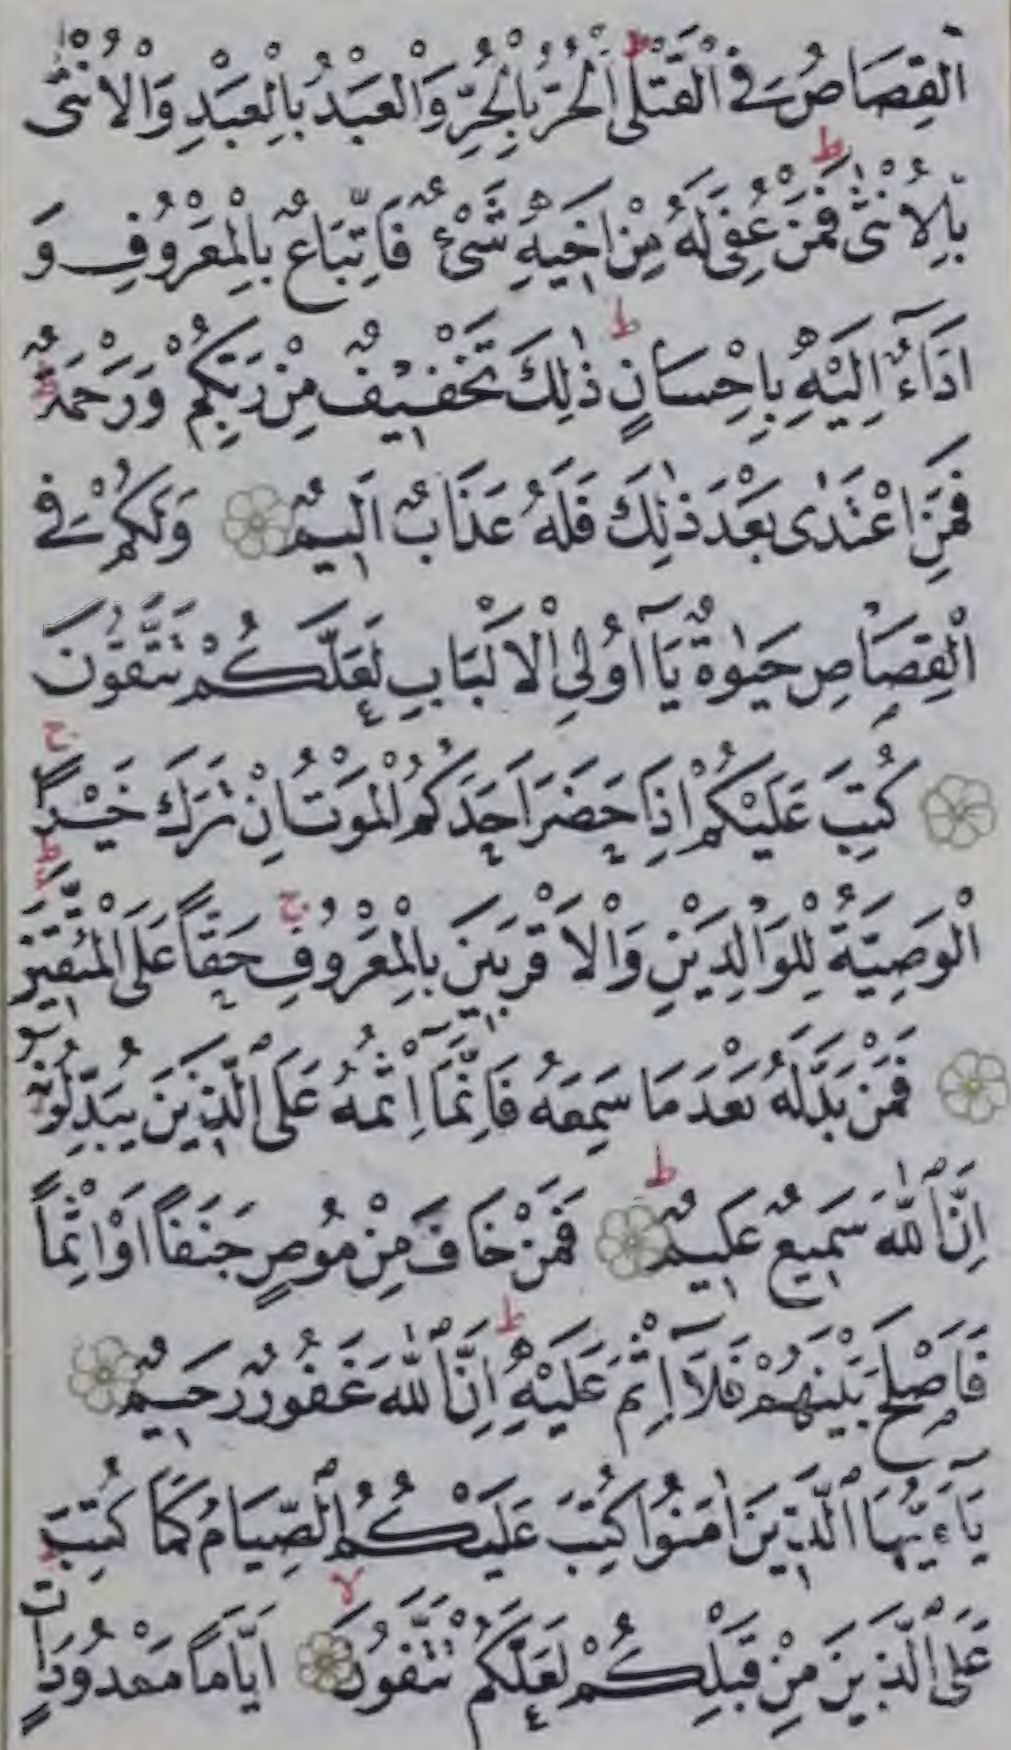 الْقِصَاصُ فِي الْقَتْلَىٰ الْحُرُّ بِالْحُرِّ وَالْعَبْدُ بِالْعَبْدِ وَالْاُنْثٰى
بِالْاُنْثٰى فَمَنْ عُفِيَ لَهُ مِنْ اَخِيهِ شَيْئٌ فَاتِّبَاعٌ بِالْمَعْرُوفِ وَ
اَدَآءٌ اِلَيْهِ بِاِحْسَانٍ ذٰلِكَ تَخْفِيفٌ مِنْ رَبِّكُمْ وَرَحْمَةٌ
فَمَنِ اعْتَدٰى بَعْدَ ذٰلِكَ فَلَهُ عَذَابٌ اَلِيمٌ وَلَكُمْ فِي
الْقِصَاصِ حَيٰوةٌ يَآ اُولِي الْاَلْبَابِ لَعَلَّكُمْ تَتَّقُونَ
كُتِبَ عَلَيْكُمْ اِذَا حَضَرَ اَحَدَكُمُ الْمَوْتُ اِنْ تَرَكَ خَيْرًا
الْوَصِيَّةُ لِلْوَالِدَيْنِ وَالْاَقْرَبِينَ بِالْمَعْرُوفِ حَقًّا عَلَى الْمُتَّقِينَ
فَمَنْ بَدَّلَهُ بَعْدَ مَا سَمِعَهُ فَاِنَّمَآ اِثْمُهُ عَلَى الَّذِينَ يُبَدِّلُونَهُ
اِنَّ اللّٰهَ سَمِيعٌ عَلِيمٌ فَمَنْ خَافَ مِنْ مُوصٍ جَنَفًا اَوْ اِثْمًا
فَاَصْلَحَ بَيْنَهُمْ فَلَآ اِثْمَ عَلَيْهِ اِنَّ اللّٰهَ غَفُورٌ رَحِيمٌ
يَآءَيُّهَا الَّذِينَ اٰمَنُوا كُتِبَ عَلَيْكُمُ الصِّيَامُ كَمَا كُتِبَ
عَلَى الَّذِينَ مِنْ قَبْلِكُمْ لَعَلَّكُمْ تَتَّقُونَ اَيَّامًا مَعْدُودَاتٍ